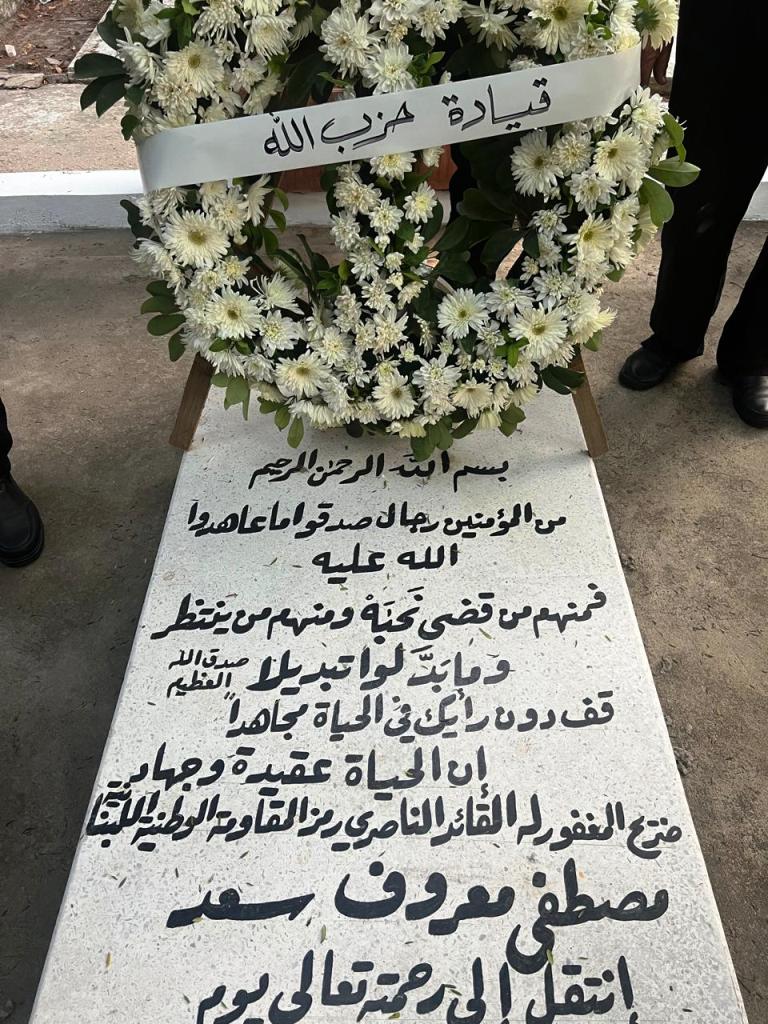 قيادة حزب الله
بسم الله الرحمن الرحيم
من المؤمنين رجال صدقوا ما عاهدوا
الله عليه
فمنهم من قضى نَحبَهُ ومنهم من ينتظر
وما بدَّلوا تبديلا صدق الله العظيم
قف دون رأيك في الحياة مجاهداً
إن الحياة عقيدة وجهاد
ضريح المغفور له القائد الناصري رمز المقاومة الوطنية اللبنانية
مصطفى معروف سعد
إنتقل إلى رحمته تعالى يوم